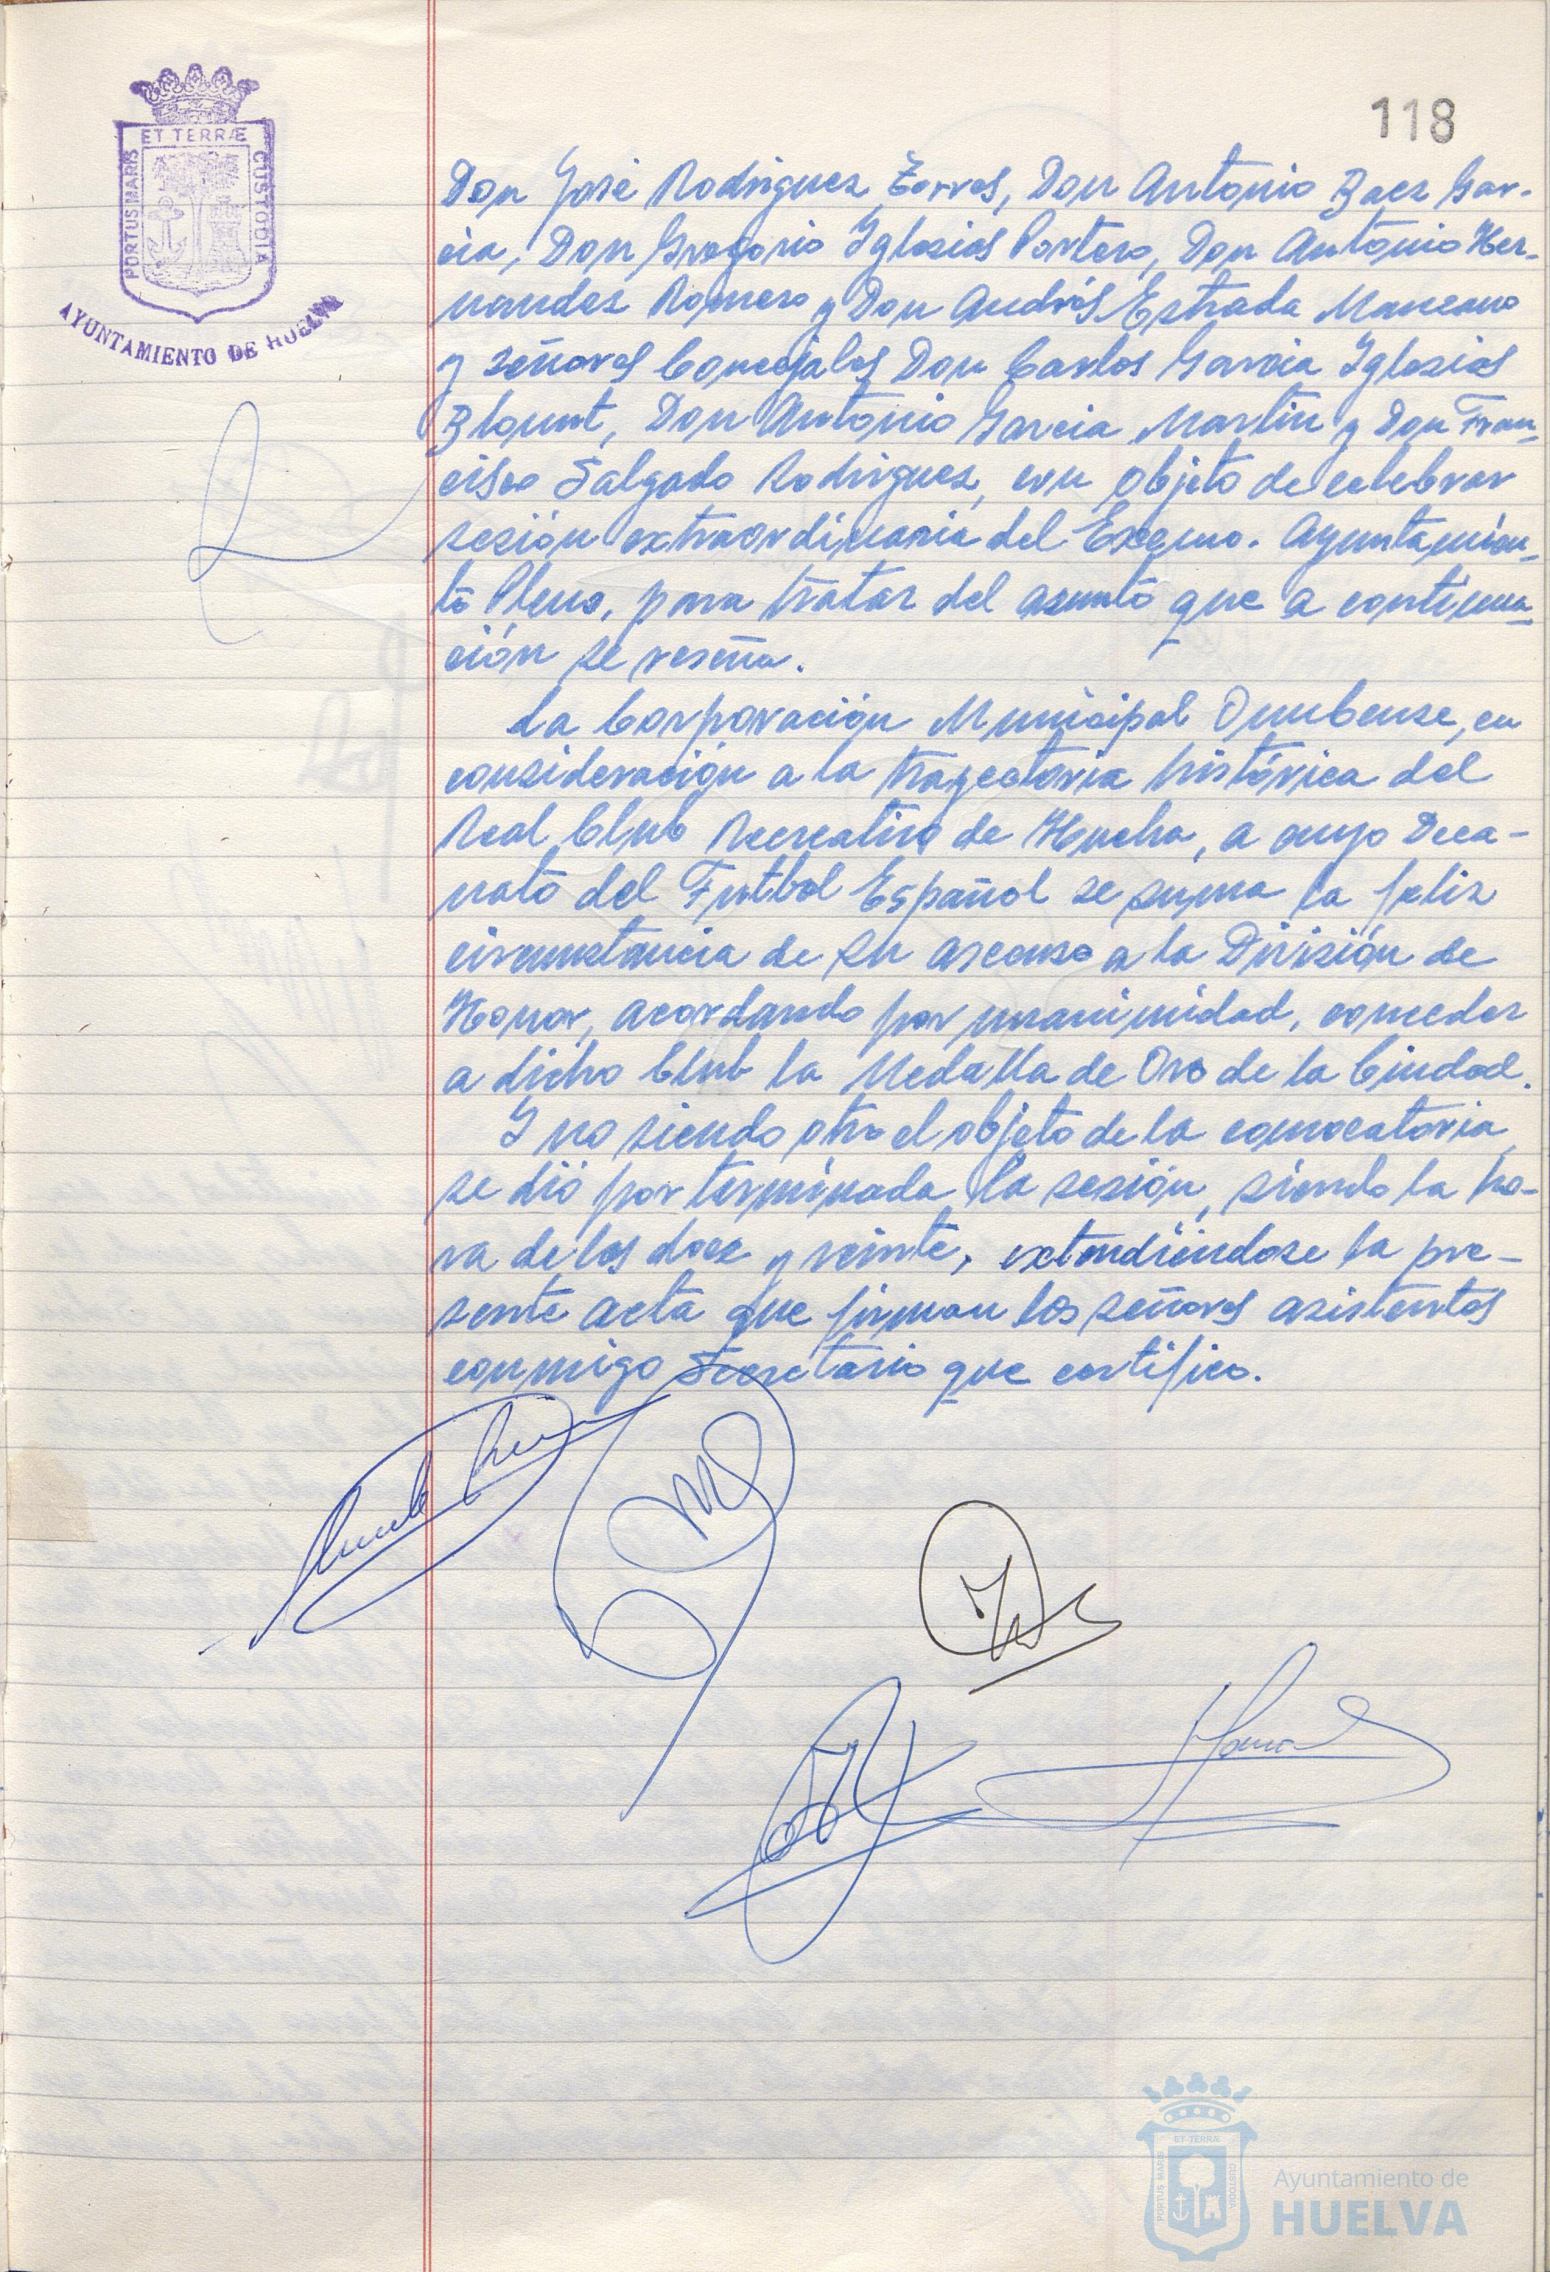 118
ET TERRÆ
PORTUS MARIS
CUSTODIA
AYUNTAMIENTO DE HUELVA
Don José Rodriguez Torres, Don Antonio Baez Gar-
cia, Don Gregorio Iglesias Portero, Don Antonio Her-
nandez Romero y Don Andrés Estrada Manzano
y señores Concejales Don Carlos Garcia Iglesias
Blount, Don Antonio Garcia Martin y Don Fran-
cisco Salgado Rodriguez, con objeto de celebrar
sesión extraordinaria del Excmo. Ayuntamien-
to Pleno, para tratar del asunto que a continua-
ción se reseña.
La Corporación Municipal Onubense, en
consideración a la trayectoria histórica del
Real Club Recreativo de Huelva, a cuyo Deca-
nato del Futbol Español se suma la feliz
circunstancia de su ascenso a la División de
Honor, acordando por unanimidad, conceder
a dicho Club la Medalla de Oro de la Ciudad.
Y no siendo otro el objeto de la convocatoria,
se dió por terminada la sesión, siendo la ho-
ra de las doce y veinte, extendiéndose la pre-
sente acta que firman los señores asistentes
conmigo Secretario que certifico.
ET TERRÆ
PORTUS MARIS
CUSTODIA
Ayuntamiento de
HUELVA